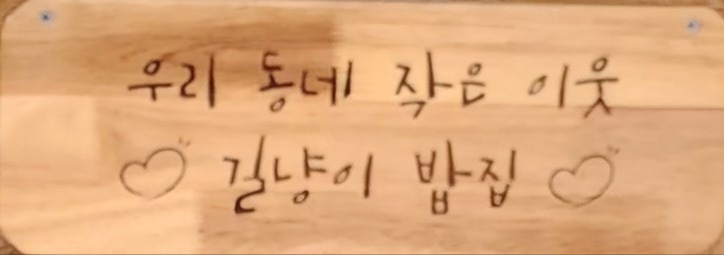 우리 동네 작은 이웃
♡ 길냥이 밥집 ♡